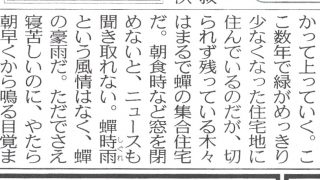 かって上っていく。こ
こ数年で緑がめっきり
少なくなった住宅地に
住んでいるのだが、切
られず残っている木々
はまるで蟬の集合住宅
だ。朝食時など窓を閉
めないと、ニュースも
聞き取れない。蟬時雨
しぐれ
という風情はなく、蟬
の豪雨だ。ただでさえ
寝苦しいのに、やたら
朝早くから鳴る目覚ま